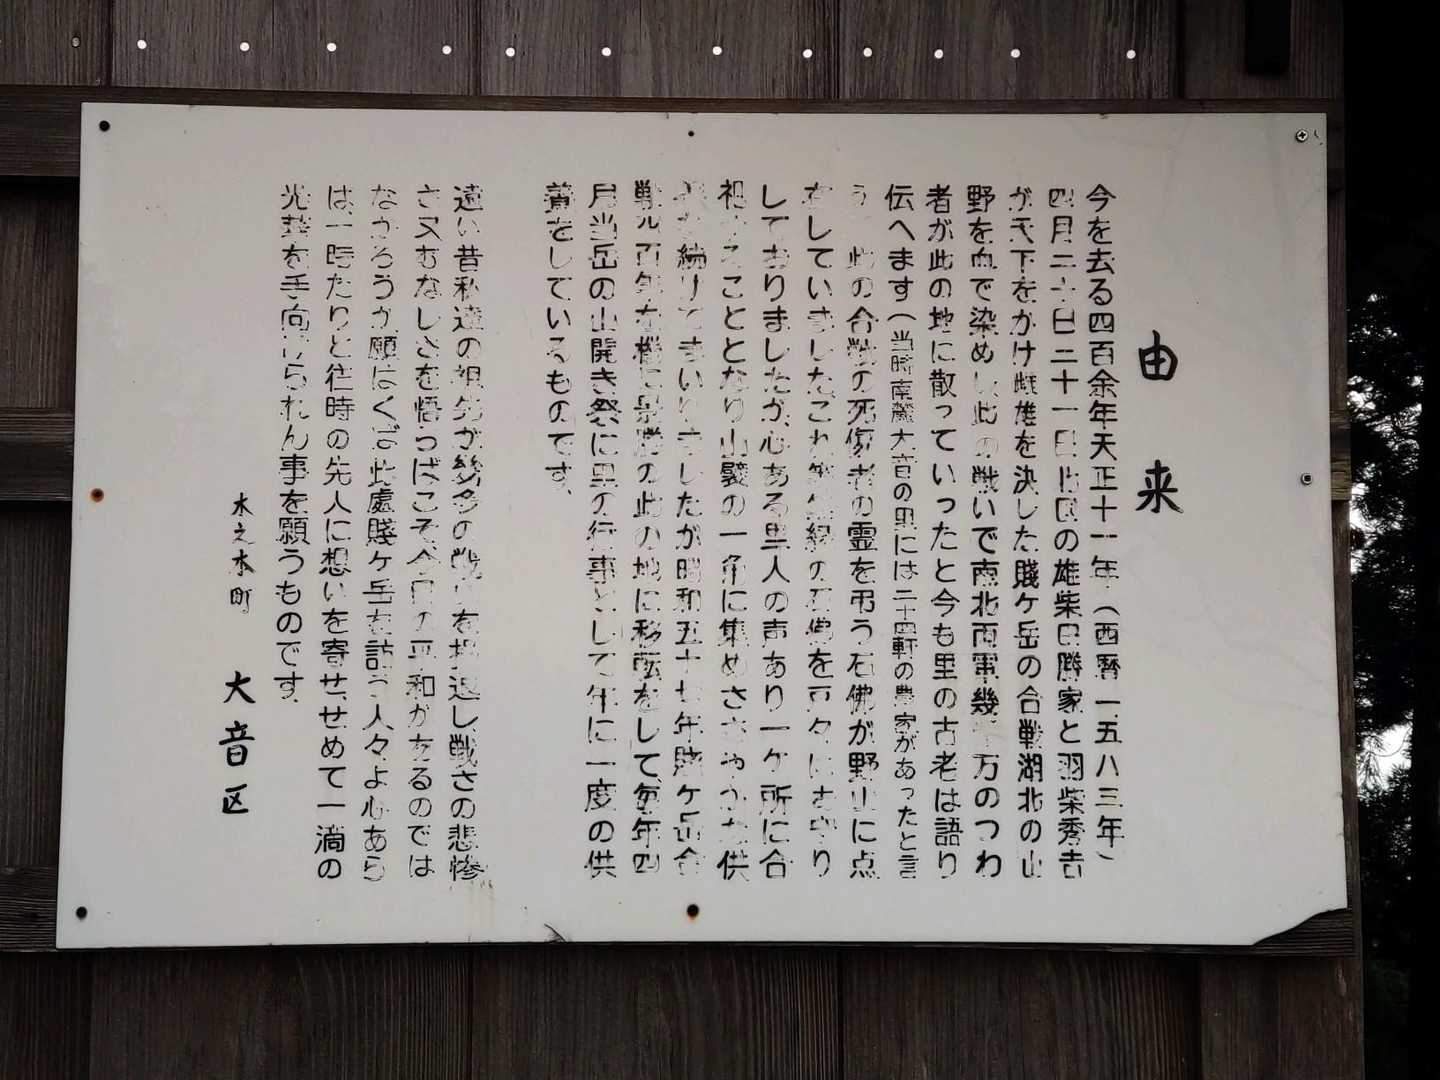 由来
今を去る四百余年天正十一年(西暦一五八三年)
四月二十日二十一日北国の雄柴田勝家と羽柴秀吉
が天下をかけ雌雄を決した賤ケ岳の合戦湖北の山
野を血で染めし此の戦いで南北両軍幾千万のつわ
者が此の地に散っていったと今も里の古老は語り
伝へます(当時南麓大音の里には二十四軒の農家があったと言
う) 此の合戦の死傷者の霊を弔う石佛が野山に点
在していましたこれ等無縁の石佛を戸々にお守り
しておりましたが心ある里人の声あり一ケ所に合
祀することとなり山麓の一角に集めささやかな供
養を続けてまいりましたが昭和五十七年賤ケ岳合
戦四百年を機に景勝の此の地に移転をして、毎年四
月当岳の山開き祭に里の行事として年に一度の供
養をしているものです。
遠い昔私達の祖先が幾多の戦火を掻退し、戦さの悲惨
さ又むなしさを悟ったればこそ、今日の平和があるのでは
なかろうか願はくば此處賤ケ岳を訪う人々よ心あら
ば、一時たりと往時の先人に想いを寄せ、せめて一滴の
光華を手向けられん事を願うものです。
木之本町 大音区